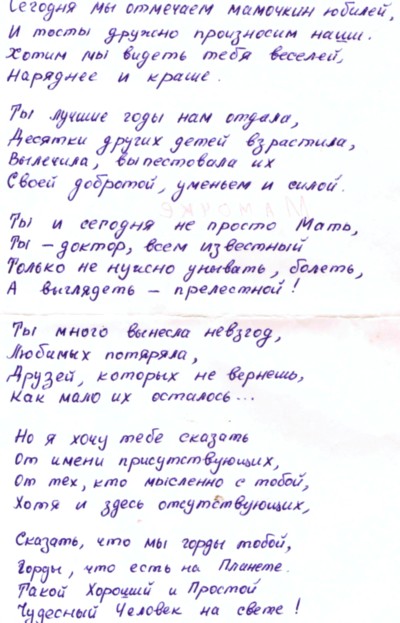 Сегодня мы отмечаем мамочкин юбилей,
И тосты дружно произносим наши.
Хотим мы видеть тебя веселей,
Наряднее и краше.
Ты лучшие годы нам отдала,
Десятки других детей взрастила,
Вылечила, выпестовала их
Своей добротой, уменьем и силой.
Мамочке
Ты и сегодня не просто Мать,
Ты – доктор, всем известный
Только не нужно унывать, болеть,
А выглядеть – прелестной!
Ты много вынесла невзгод,
Любимых потяряла,
Друзей, которых не вернешь,
Как мало их осталось...
Но я хочу тебе сказать
От имени присутствующих,
От тех, кто мысленно с тобой,
Хотя и здесь отсутствующих,
Сказать, что мы горды тобой,
Горды, что есть на Планете.
Такой Хороший и Простой
Чудесный Человек на свете!